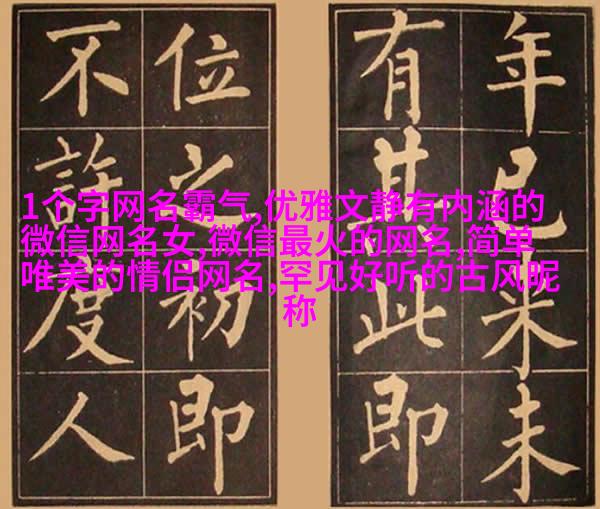 年已来未
有其此即
位之初即
不許度人
1个字网名霸气,优雅文静有内涵的
微信网名女,微信最火的网名,简单
唯美的情侣网名,罕见好听的古风昵
称